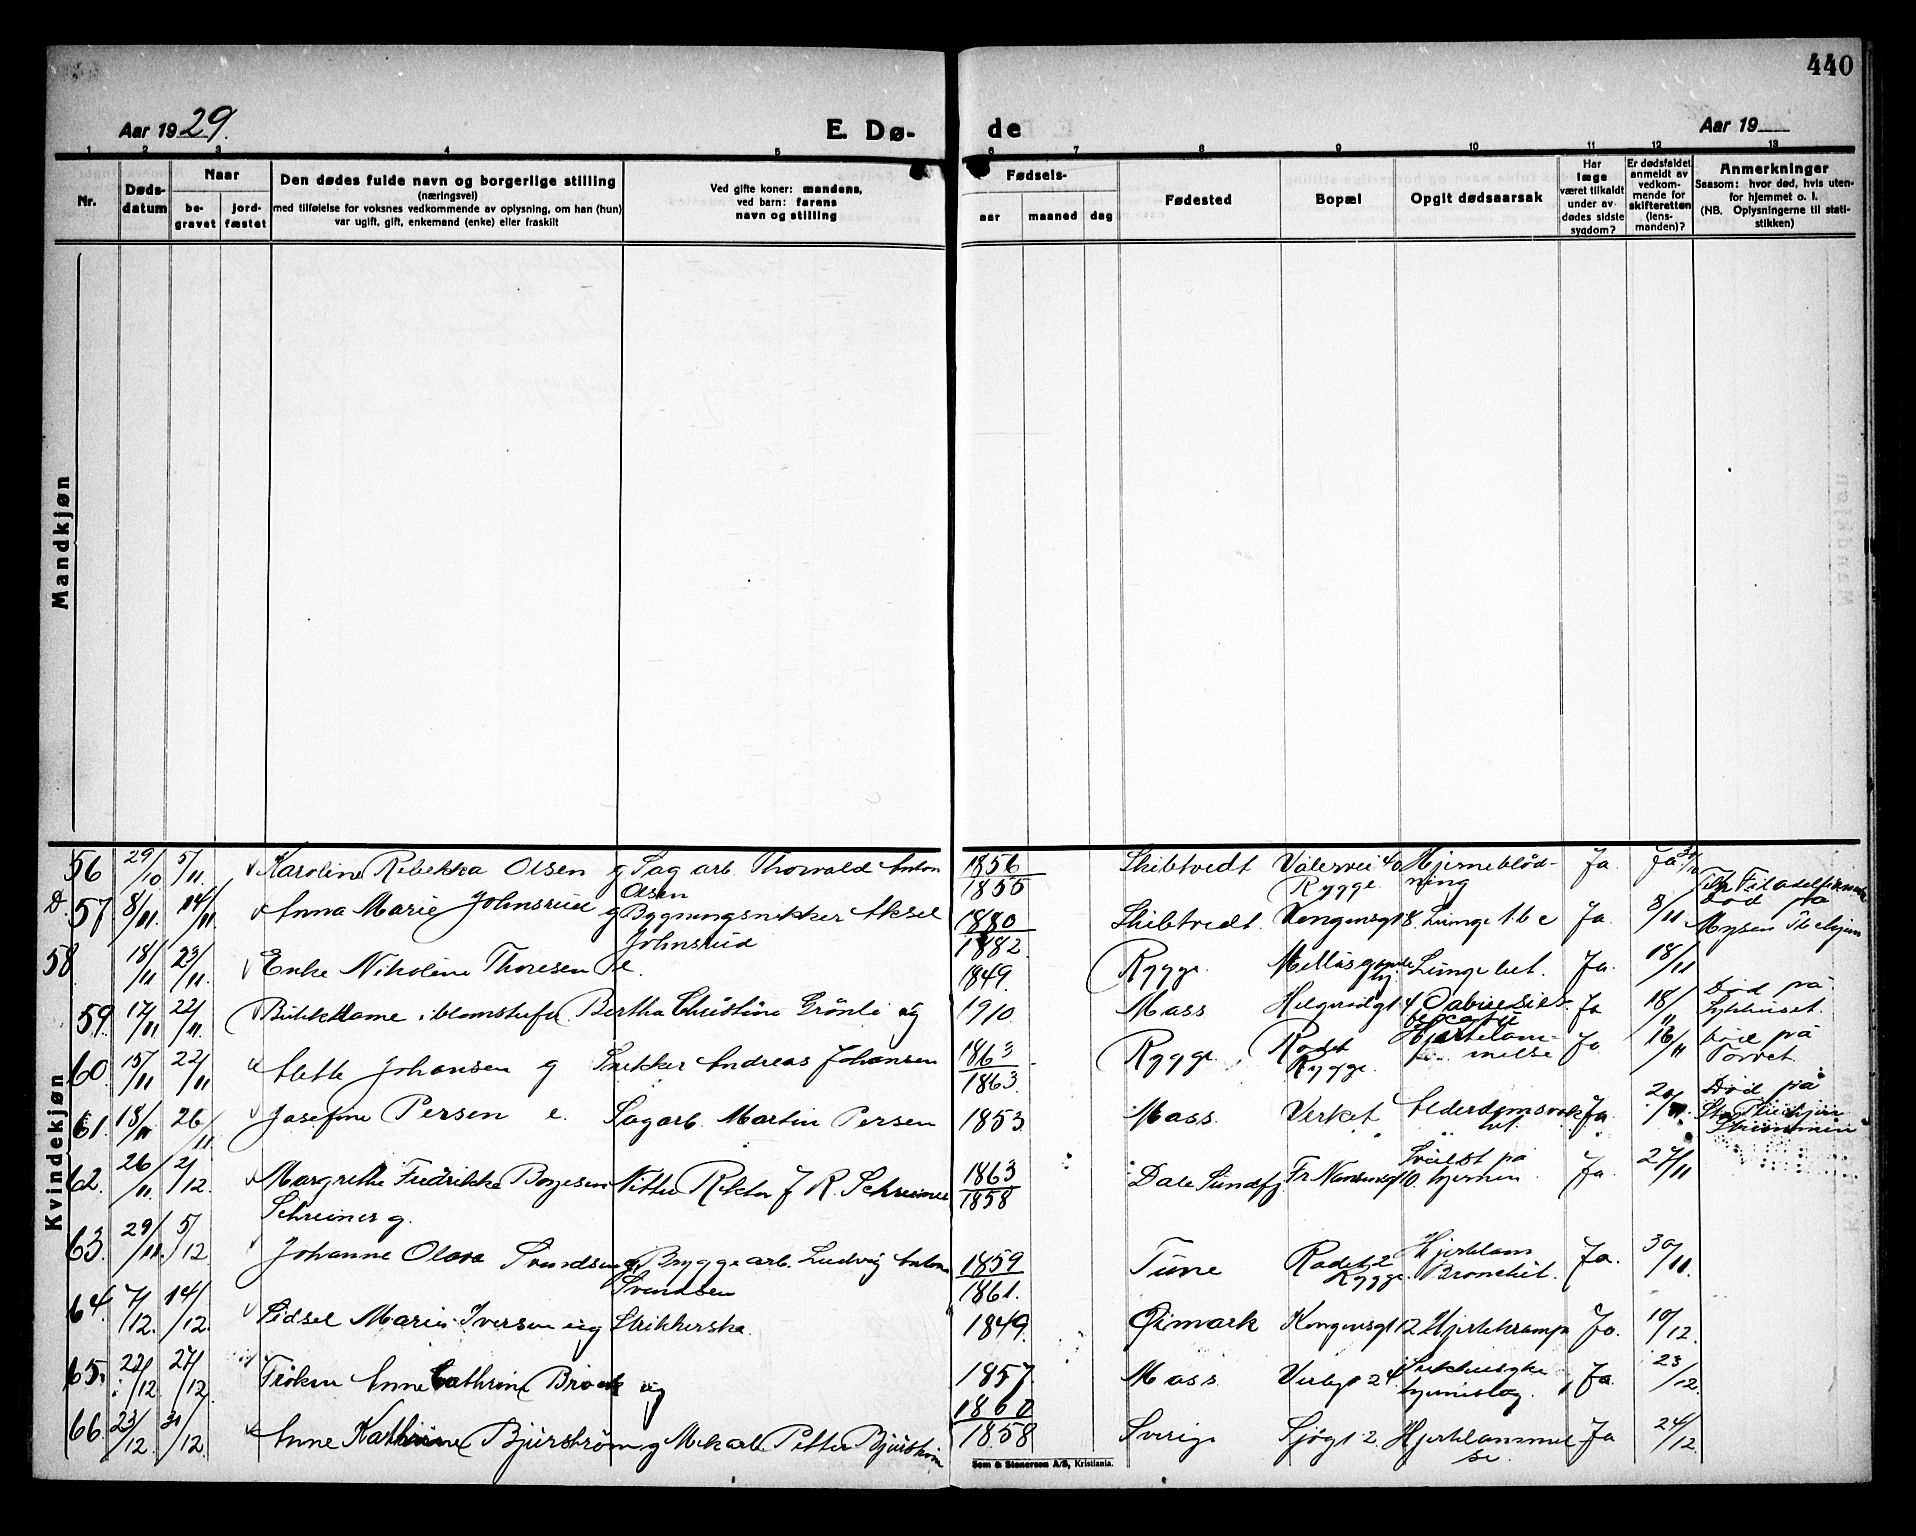 440
Aar 1929.
E. Dø-
de
Aar 19
1 2 3 4 5 6 7 8 9 10 11 12 13
Nr.
Døds-
datum
Naar
be-
gravet
jord-
fæstet
Den dødes fulde navn og borgerlige stilling
(næringsvei)
med tilføielse for voksnes vedkommende av oplysning, om han (hun)
var ugift, gift, enkemand (enke) eller fraskilt
Ved gifte koner: mandens,
ved barn: farens
navn og stilling
Fødsels-
aar maaned dag
Fødested
Bopæl
Opgit dødsaarsak
Har
læge
været tilkaldt
under av-
dødes sidste
sygdom?
Er dødsfaldet
anmeldt av
vedkom-
mende for
skifteretten
(lens-
manden)?
Anmerkninger
Saasom: hvor død, hvis uten-
for hjemmet o. l.
(NB. Oplysningerne til stati-
stikken)
Mandkjøn
Kvindekjøn
56 29/10 5/11 Karoline Rebekka Olsen g Sag arb. Thorvald Anton
Olsen 1856
1855 Skibtvedt Valervei 40
Rygge Hjerneblød-
ning Ja Ja
D. 57 8/11 14/11 Anna Marie Johnsrud g Bygningsnikker Aksel
Johnsrud 1880
1882 Skibtvedt. Vongensgt 8 Lunge tbc Ja 8/11 død på
Mysen
58 18/11 23/11 Enke Nikoline Thoresen e. 1849. Rygge. Lunge bet. Ja 18/11
59 17/11 22/11 Butikkdame i blomsterfor. Bertha Christine Grönli ug 1910 Moss Ja 18/11 Død på
Sykhuset.
60 15/11 22/11 Johansen g Snekker Andreas Johansen 1863
1863 Rygge Rødet
Rygge. Hjertelam-
melse Ja 16/11 Død på
Torvet
61. 18/11 26/11 Josefine Persen e. Sagarb. Martin Persen 1853 Moss Verket Alderdomsvak Ja 20/11. Død på
62. 26/11 2/12 Margrethe Fredrikke Borjesen
Schreiner g. Rektor J. R. Schreiner 1863
1858 Dale Søndfj. Fr Nansensgt 10 Svulst på
hjernen Ja 27/11
63. 29/11 5/12 Johanne Olava Svendsen g. Bryggearb. Ludvig Anton
Svendsen 1859
1861. Tune Rødet 2
Rygge. Hjertelam
Bronchit. Ja. 30/11.
64. 7/12 14/12 Sidsel Marie Iversen ug Strikkerske. 1849. Øimark Kongensgt 12 Hjertekrampe Ja. 10/12.
65. 22/12 27/12 Frøken Anne Cathrine Brock ug 1857 Moss Ja. 23/12.
66. 23/12 31/12 Anne Kathrine Bjurstrøm g Mek arb Petter Bjurstrøm 1860
1858 Sverige Sjøgt 2. Hjertelammel
se. Ja 24/12.
Sem & Stenersen A/S, Kristiania.